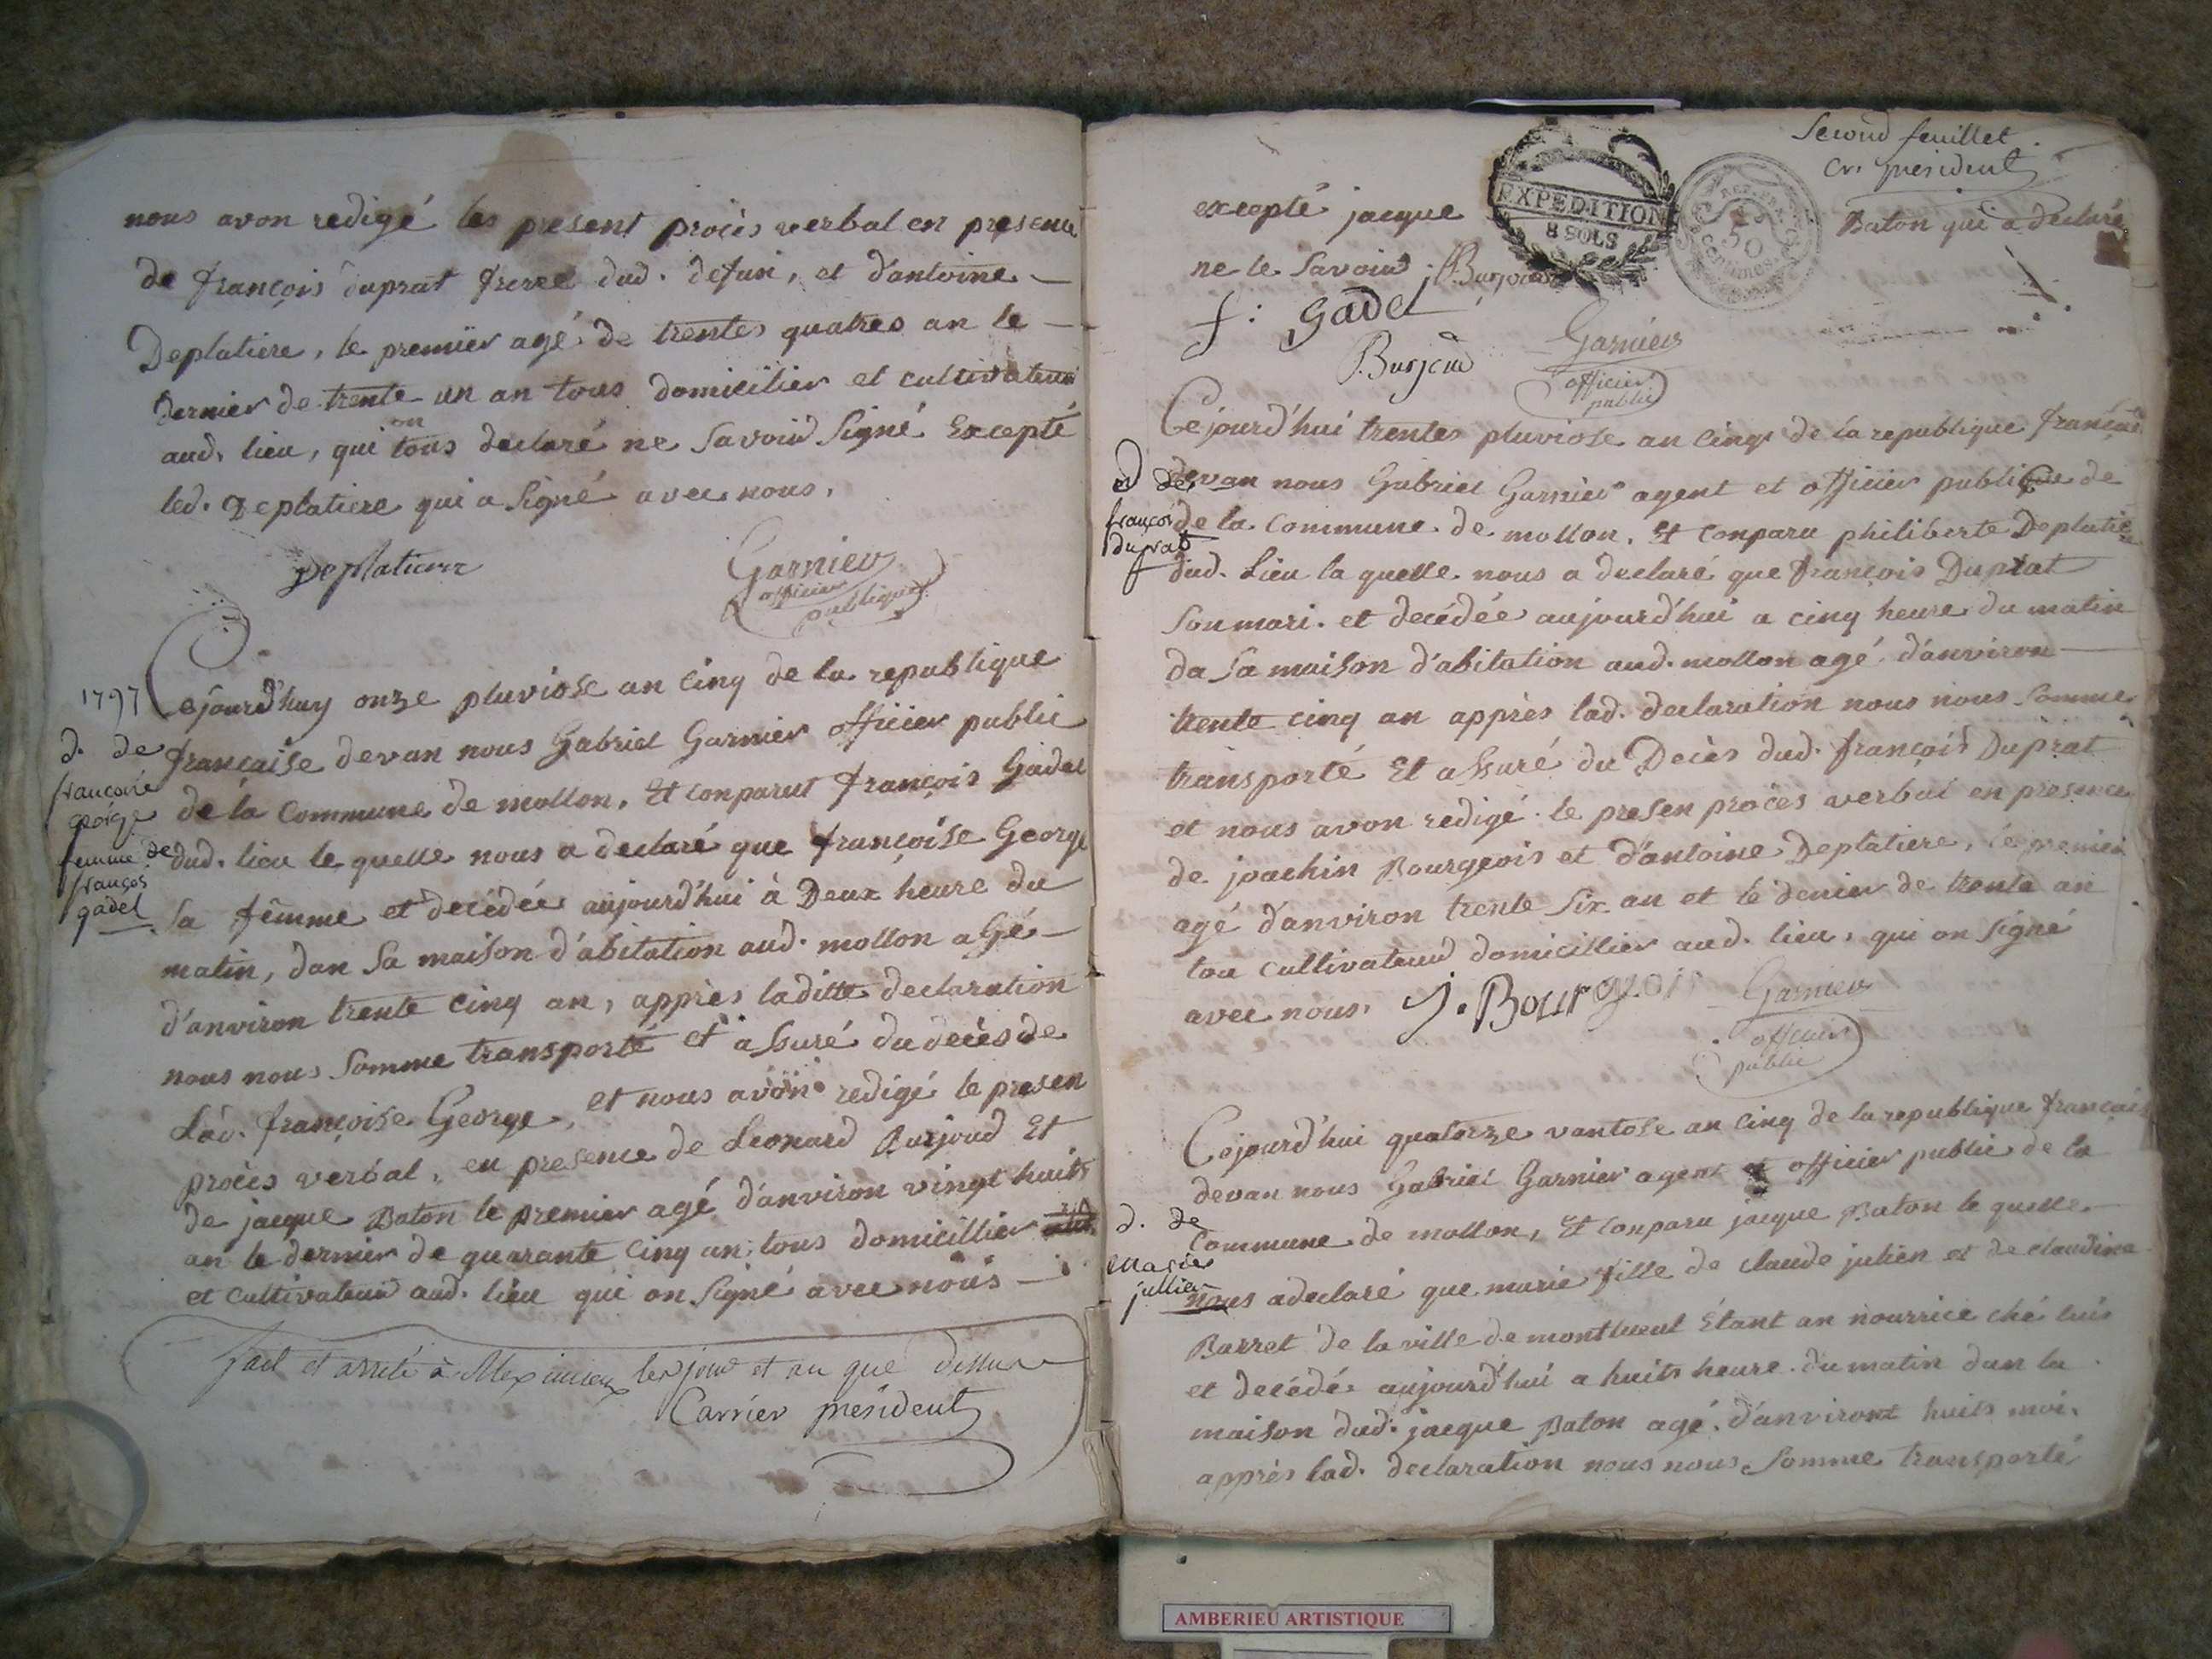 nous avon redigé les present procès verbal en presence
de françois duprat frere dud. defun, et d'antoine
Deplatiere, le premier agé de trentes quatres an le
dernier de trente un an tous domicilier et cultivateur
aud. lieu, qui on tous declaré ne savoir signé Excepté
led. Deplatiere qui a signé avec nous.
Deplatiere
Garnier
officier
publique
1797
Cejourd'huy onze pluviose an cinq de la republique
d. de
francoise
george
femme de
françois
gadel
française devan nous Gabriel Garnier officier public
de la Commune de mollon, Et conparut françois Gadel
dud. lieu le quelle nous a declaré que françoise George
sa fêmme et decédée aujourd'hui à Deux heure du
matin, dan sa maison d'abitation aud. mollon agé
d'anviron trente cinq an, apprès laditte declaration
nous nous somme transporté et assuré du decès de
Lad. françoise George, et nous avon redigé le presen
procès verbal, en presence de Leonard Burjoud Et
de jacque Baton le premier agé d'anviron vingt huits
an le dernier de quarante cinq an, tous domicillier
et cultivateur aud. lieu qui on signé avec nous
fait et arrêté à Meximieux les jour et an que dessus
Carrier président
Second feuillet
cr. président
excepté jacque
EXPEDITION
8 SOLS
50
centimes
Baton qui a declaré
ne le savoir
Burjoud
f: gadel
Burjoud
Garnier
officier
public
Cejourd'hui trentes pluviose an cinq de la republique française
d de
françois
duprat
devan nous Gabriel Garnier agent et officier publique de
de la Commune de mollon, Et conparu philiberte Deplatiere
dud. Lieu la quelle nous a declaré que françois Duprat
son mari et decédée aujourd'hui a cinq heure du matin
da sa maison d'abitation aud. mollon agé d'anviron
trente cinq an apprès lad. declaration nous nous somme
transporté Et assuré du Decès dud. françois Duprat
et nous avon redigé le presen procès verbal en presence
de joachin Bourgeois et d'antoine Deplatiere, le premier
agé d'anviron trente six an et le denier de trente an
tou cultivateur domicillier aud. lieu, qui on signé
avec nous.
J. Bourgois
Garnier
officier
public
Cejourd'hui quatorze vantose an cinq de la republique français
devan nous Gabriel Garnier agent et officier public de la
d. de
marie
jullien
Commune de mollon, Et conparu jacque Baton le quelle
nous a declaré que marie fille de claude julien et de claudine
Barret de la ville de montluent Étant an nourrice ché luis
et decédée aujourd'hui a huits heure du matin dan la
maison dud. jacque Baton agé d'anviront huits moi.
apprès lad. declaration nous nous somme transporté
AMBERIEU ARTISTIQUE